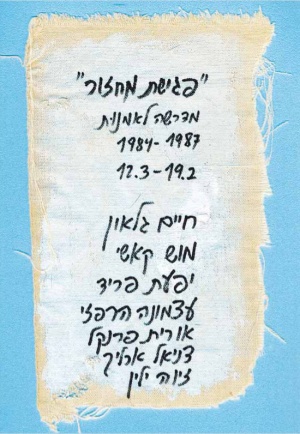 "פגישת מחזור"
מדרשה לאמנות
1984-1987
12.3-19.2
חיים גלאון
מוש קאשי
יפעת פריד
עצמונה הרפזי
אורית פרנקל
דניאל ארליך
זיוה ילין